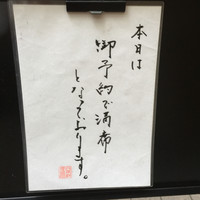 本日は
御予約で満席
となっております。